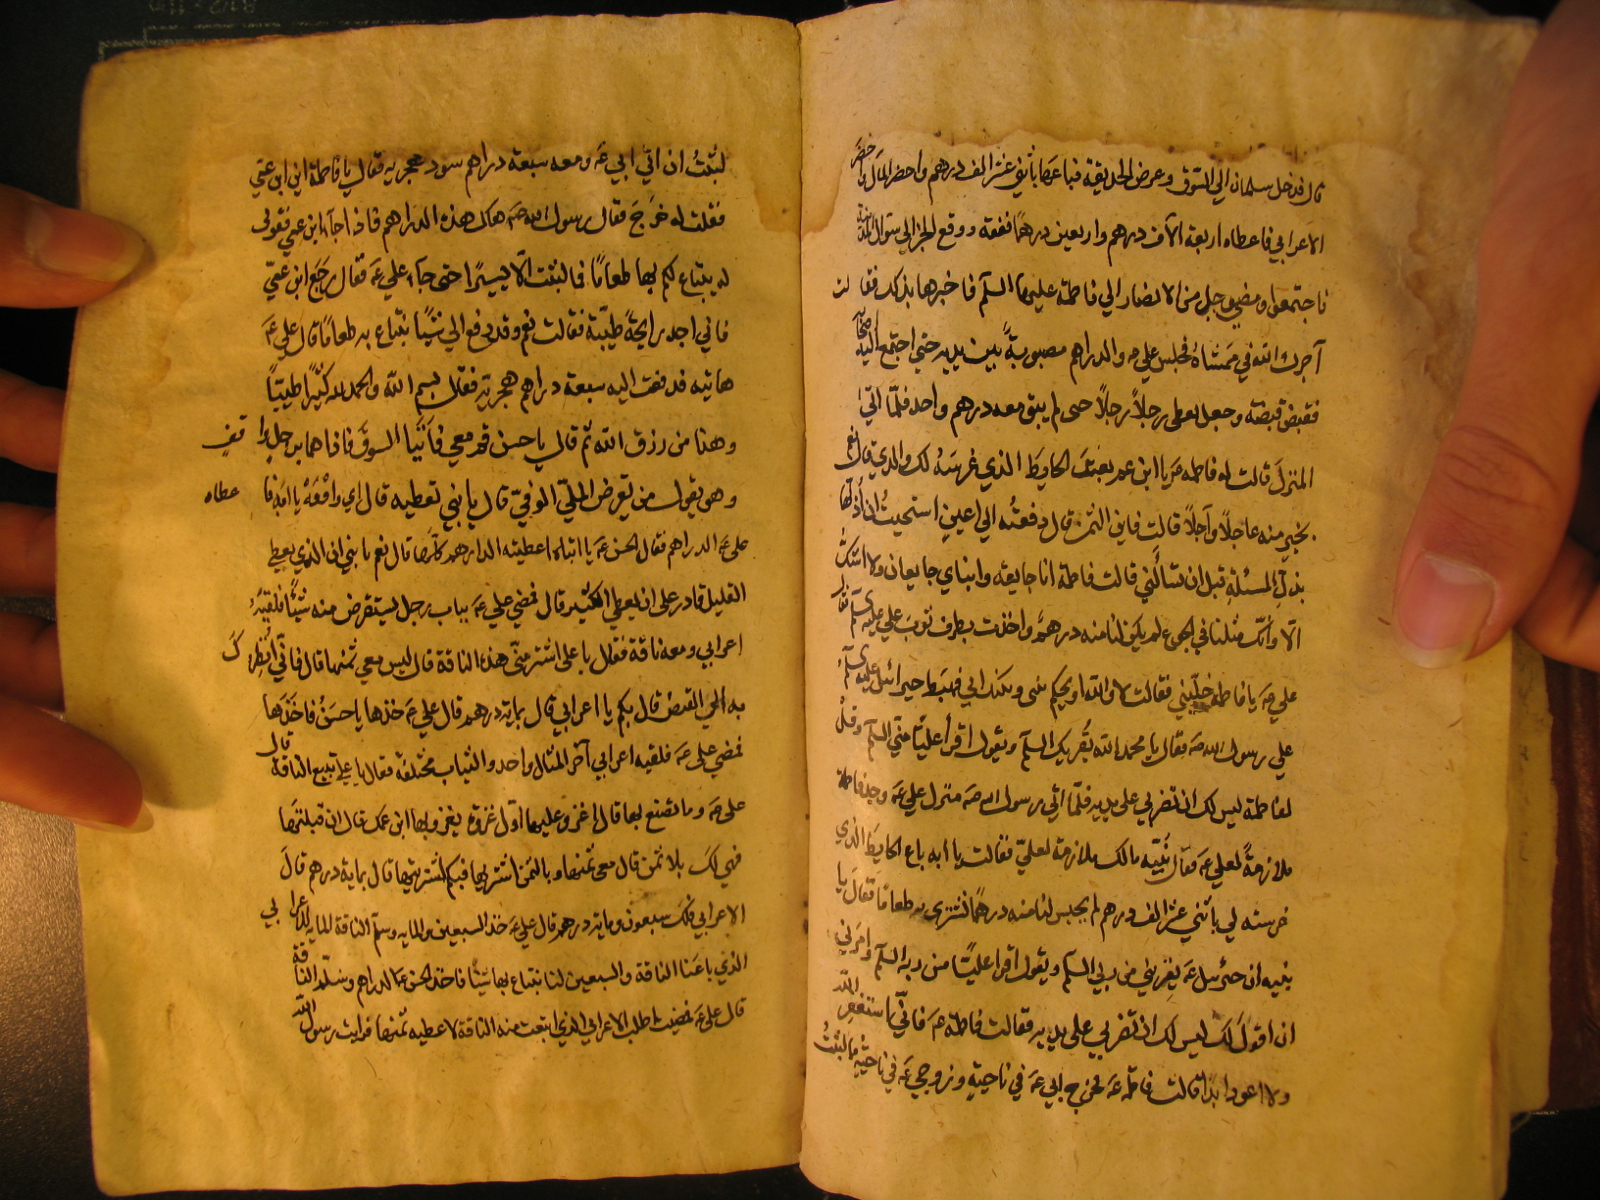 قال فدخل سلمان الي السوق وعرض الحديقة فباعها باثني عشر الف درهم واحضر المال واحضر
الاعرابي فاعطاه اربعة الآف درهم واربعين درهمًا نفقة ووقع الخبر الي سوال المدينة
فاجتمعوا ومضي رجل من الانصار الي فاطمة عليها السلم فاخبرها بذلك فقالت
آجرك الله في ممشاك فجلس علي ع والدراهم مصبوبةً بين يديه حتي اجتمع اليه اصحابه
فقبض قبضة وجعل يعطي رجلاً رجلاً حتي لم يبق معه درهم واحد فلمّا اتي
المنزل قالت له فاطمة ع يا ابن عم بعت الحايط الذي غرسه لك والدي قال نعم
بخير منه عاجلاً وآجلاً قالت فاين الثمن قال دفعته الي اعين استحييت ان اُذلّها
بذلّ المسئلة قبل ان تسألني قالت فاطمة انا جايعة وابناي جايعان ولا اشك
الّا وانك مثلنا في الجوع لم يكن لنا منه درهم واخذت بطرف ثوب علي عليه السلم فقال
علي ع يا فاطمة خلّيني فقالت لا والله او يحكم بيني وبينك ابي فهبط جبرائيل عليه السلم
علي رسول الله ص فقال يا محمد الله يُقريك السلم ويقول اقرأ عليًّا منّي السلم وقل
لفاطمة ليس لك ان تضربي علي يديه فلمّا اتي رسول الله ص منزل علي ع وجد فاطمة
ملازمةً لعلي ع فقال بُنيّه مالك ملازمة لعليّ فقالت يا ابه باع الحايط الذي
غرسته لي باثني عشر الف درهم لم يحبس لنا منه درهمًا نشتري به طعامًا فقال يا
بنيه ان جبرئيل ع يقريني من ربي السلم ويقول اقرا عليًّا من ربه السلم وامرني
ان اقول لك ليس لك ان تضربي علي يديه فقالت فاطمة ع فانّي استغفر الله
ولا اعود ابدًا قالت فاطمة ع فخرج ابي ع في ناحية وزوجي ع في ناحيةٍ ما لبثت
لبثتُ ان اتي ابي ع ومعه سبعة دراهم سود هجريه فقال يا فاطمة اين ابن عمّي
فقلت له خرج فقال رسول الله ص هاك هذه الدراهم فاذا جآء ابن عمي فقولي
له يبتاع لكم بها طعامًا فما لبثت الّا يسيرًا حتي جآء علي ع فقال رجع ابن عمّي
فاني اجد رايحةً طيّبة فقالت نعم وقد دفع الي شيئًا تبتاع به طعامًا قال علي ع
هاتيه فدفعت اليه سبعة دراهم هجرية فقال بسم الله والحمد لله كثيرًا طيّبًا
وهذا من رزق الله ثم قال يا حسن قم معي فاَتَيا السوق فاذا هما برجل واقفٍ
وهو يقول من يقرض المليّ الوفيّ قال يا بني تعطيه قال اي والله يا ابه فاعطاه
علي ع الدراهم فقال الحسن ع يا ابتاه اعطيته الدراهم كلها قال نعم يا بني ان الذي يعطي
القليل قادر علي ان يعطي الكثير قال فمضي علي ع بباب رجل يستقرض منه شيئًا فلقيه
اعرابي ومعه ناقة فقال يا علي اشتر منّي هذه الناقة قال ليس معي ثمنها قال فانّي اُنظرك
به الي القبض قال بكم يا اعرابي قال بماية درهم قال علي ع خذها يا حسن فاخذها
فمضي علي ع فلقيه اعرابي آخر المثال واحد والثياب مختلفة فقال يا علي تبيع الناقة قال
علي ع وما تصنع بها قال اغزو عليها اول غزوة يغزوها ابن عمك قال ان قبلتها
فهي لك بلا ثمن قال معي ثمنها وبالثمن اشتريها فبكم اشتريتها قال بماية درهم قال
الاعرابي فلك سبعون وماية درهم قال علي ع خذ السبعين والمايه وسلّم الناقة المايه للاعرابي
الذي باعنا الناقة والسبعين لنا نبتاع بها شيئًا فاخذ الحسن ع الدراهم وسلّم الناقة
قال علي ع فمضيت اطلب الاعرابي الذي ابتعت منه الناقة لاعطيه ثمنها فرايت رسول الله